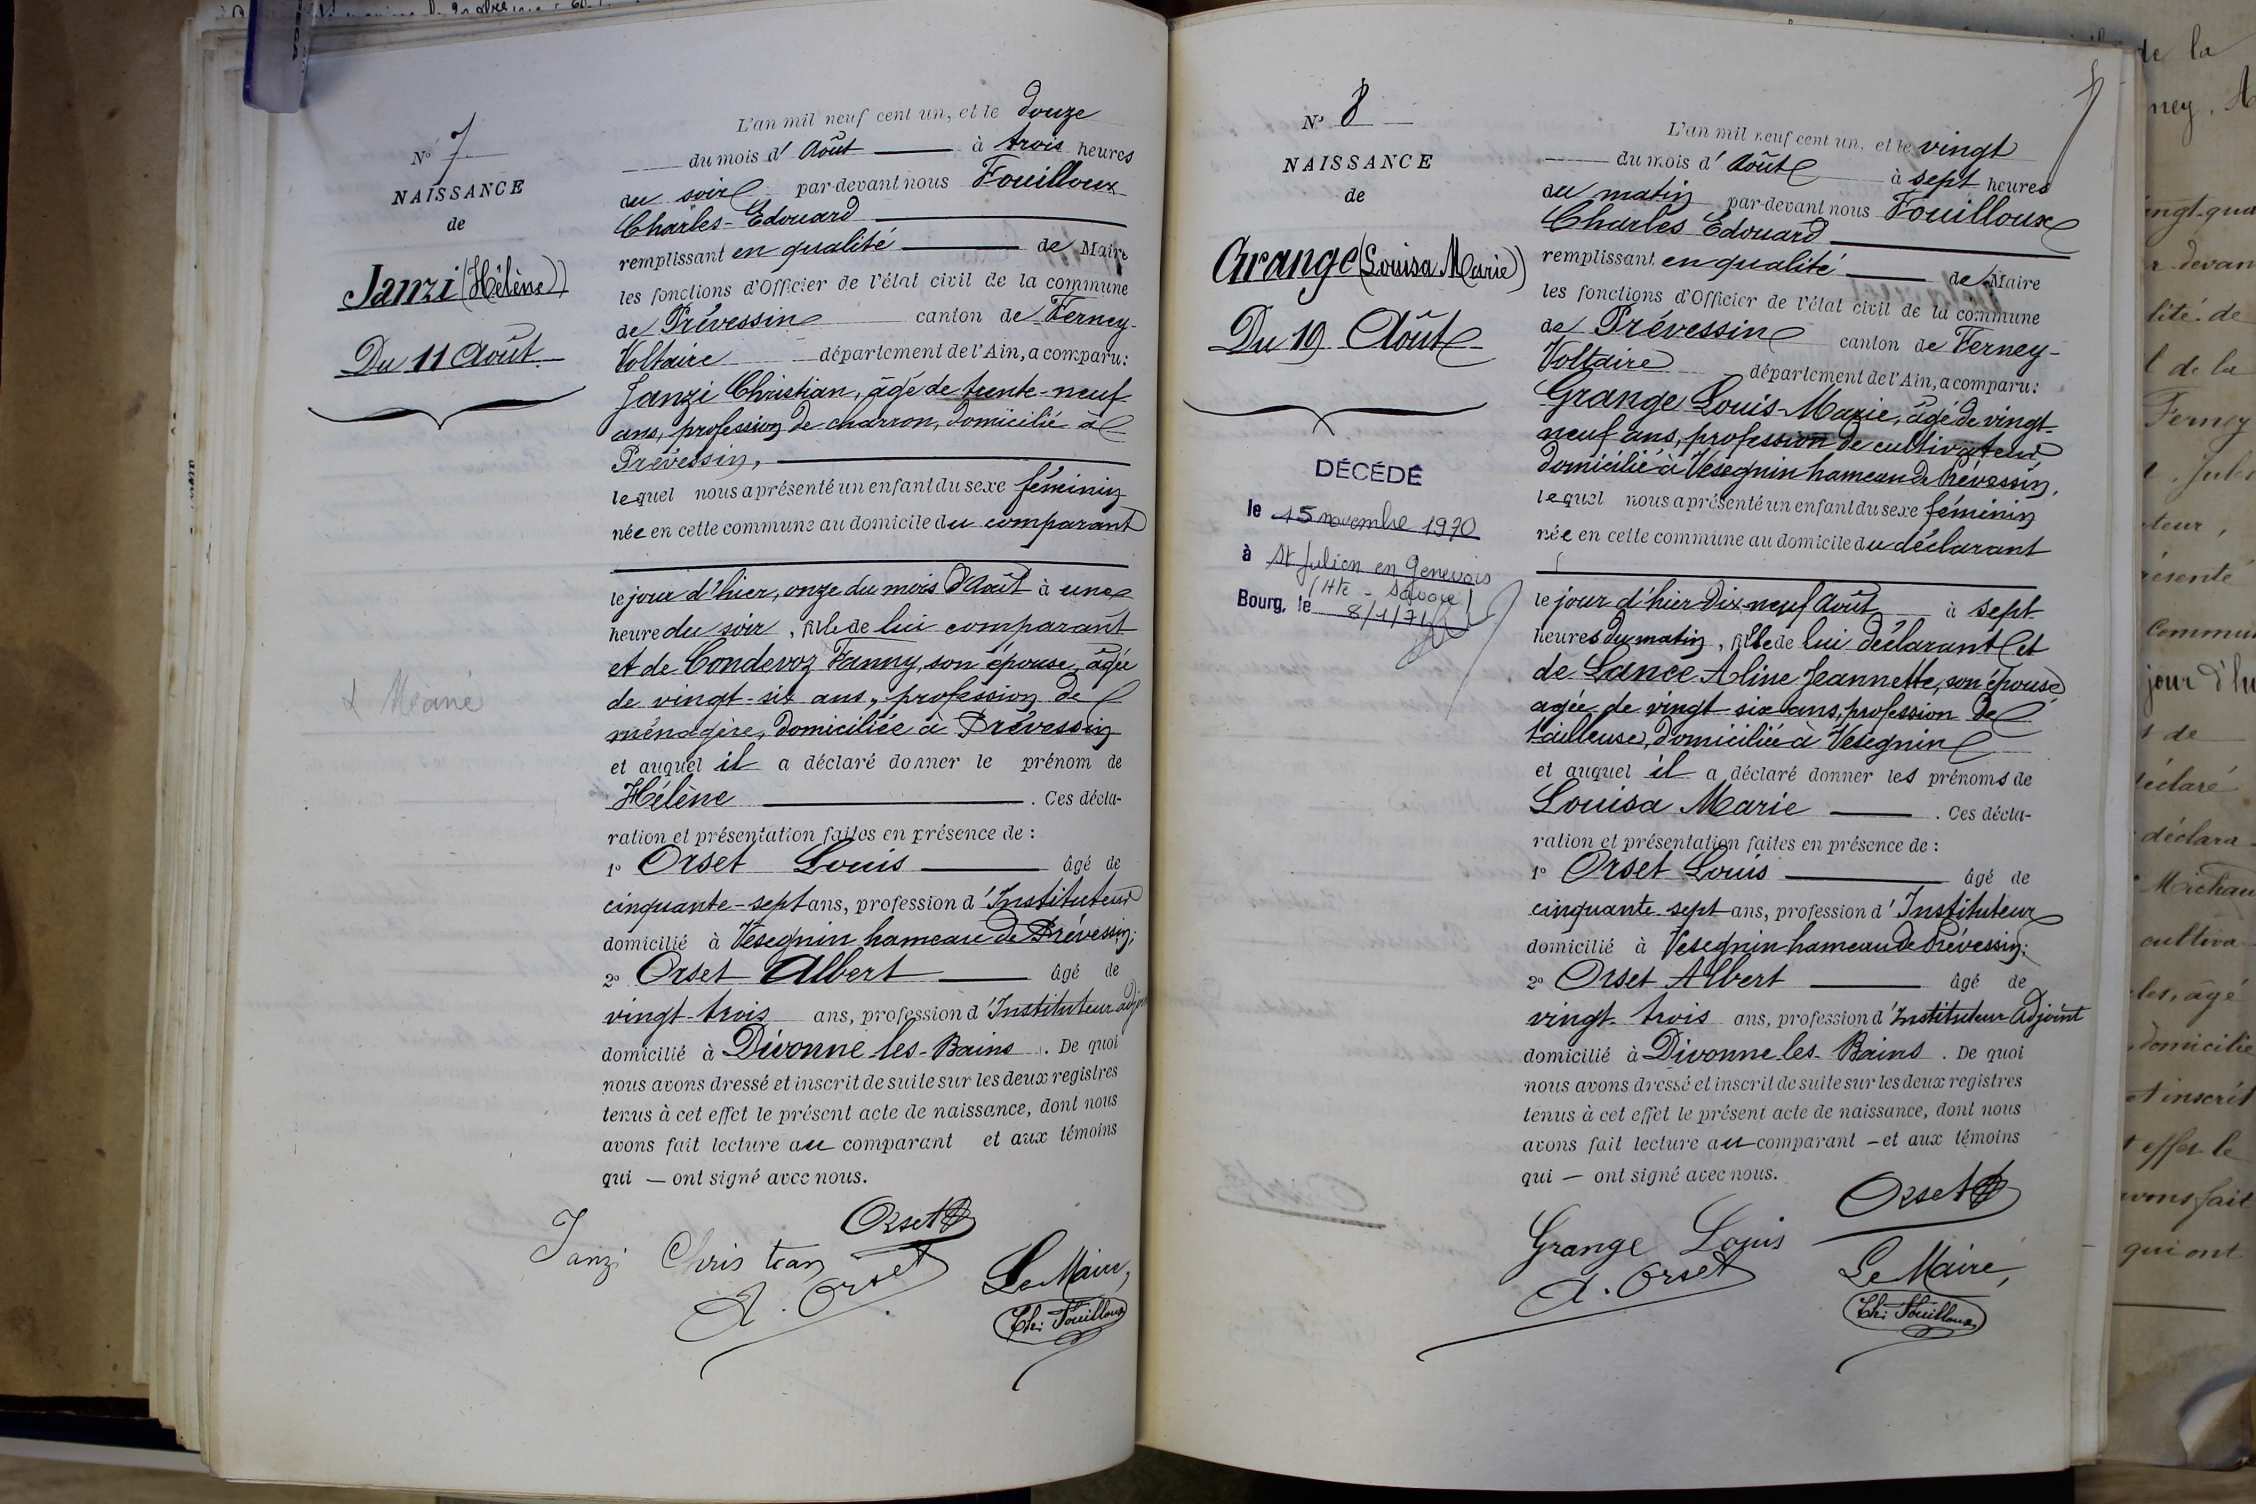 N° 7
NAISSANCE
de
Janzi (Hélène)
Du 11 Août
L'an mil neuf cent un, et le douze
du mois d'Août à trois heures
du soir par-devant nous Fouilloux
Charles-Edouard
remplissant en qualité de Maire
les fonctions d'Officier de l'état civil de la commune
de Prévessin canton de Ferney-
Voltaire département de l'Ain, a comparu:
Janzi Christian, âgé de trente-neuf
ans, profession de charron, domicilié à
Prévessin,
lequel nous a présenté un enfant du sexe féminin
née en cette commune au domicile du comparant
le jour d'hier, onze du mois d'Août à une
heure du soir, fille de lui comparant
et de Condevoz Fanny, son épouse, âgée
de vingt-six ans, profession de
ménagère, domiciliée à Prévessin
et auquel il a déclaré donner le prénom de
Hélène. Ces décla-
ration et présentation faites en présence de :
1° Orset Louis âgé de
cinquante-sept ans, profession d'Instituteur
domicilié à Vésegnin hameau de Prévessin;
2° Orset Albert âgé de
vingt-trois ans, profession d'Instituteur
domicilié à Divonne-les-Bains. De quoi
nous avons dressé et inscrit de suite sur les deux registres
tenus à cet effet le présent acte de naissance, dont nous
avons fait lecture au comparant et aux témoins
qui — ont signé avec nous.
Orset
Janzi Christian
A. Orset
Le Maire,
Ch: Fouilloux
N° 8
NAISSANCE
de
Grange (Louisa Marie)
Du 19 Août
DÉCÉDÉ
le 15 novembre 1970
à St Julien en Genevois
(Hte-Savoie)
Bourg, le 8/1/71
L'an mil neuf cent un, et le vingt
du mois d'Août à sept heures
du matin par-devant nous Fouilloux
Charles Edouard
remplissant en qualité de Maire
les fonctions d'Officier de l'état civil de la commune
de Prévessin canton de Ferney-
Voltaire département de l'Ain, a comparu:
Grange Louis-Marie, âgé de vingt-
neuf ans, profession de cultivateur
domicilié à Vésegnin hameau de Prévessin,
lequel nous a présenté un enfant du sexe féminin
née en cette commune au domicile du déclarant
le jour d'hier dix-neuf Août à sept
heures du matin, fille de lui déclarant et
de Lance Aline Jeannette, son épouse
agée de vingt six ans, profession de
tailleuse, domiciliée à Vésegnin
et auquel il a déclaré donner les prénoms de
Louisa Marie. Ces décla-
ration et présentation faites en présence de :
1° Orset Louis âgé de
cinquante-sept ans, profession d'Instituteur
domicilié à Vésegnin hameau de Prévessin;
2° Orset Albert âgé de
vingt-trois ans, profession d'Instituteur Adjoint
domicilié à Divonne-les-Bains. De quoi
nous avons dressé et inscrit de suite sur les deux registres
tenus à cet effet le présent acte de naissance, dont nous
avons fait lecture au comparant — et aux témoins
qui — ont signé avec nous.
Orset
Grange Louis
A. Orset
Le Maire,
Ch: Fouilloux